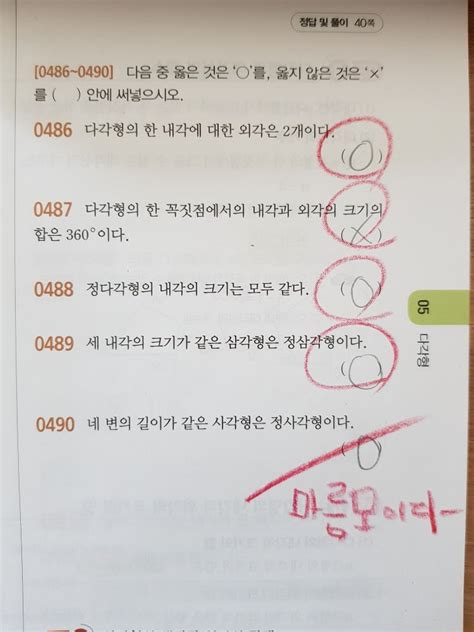 정답 및 풀이 40쪽
[0486~0490] 다음 중 옳은 것은 ‘○’를, 옳지 않은 것은 ‘×’
를 ( ) 안에 써넣으시오.
0486 다각형의 한 내각에 대한 외각은 2개이다.
(○)
0487 다각형의 한 꼭짓점에서의 내각과 외각의 크기의
합은 360°이다. (×)
0488 정다각형의 내각의 크기는 모두 같다. (○)
0489 세 내각의 크기가 같은 삼각형은 정삼각형이다.
(○)
0490 네 변의 길이가 같은 사각형은 정사각형이다.
(○)
마름모이다~
05
다각형